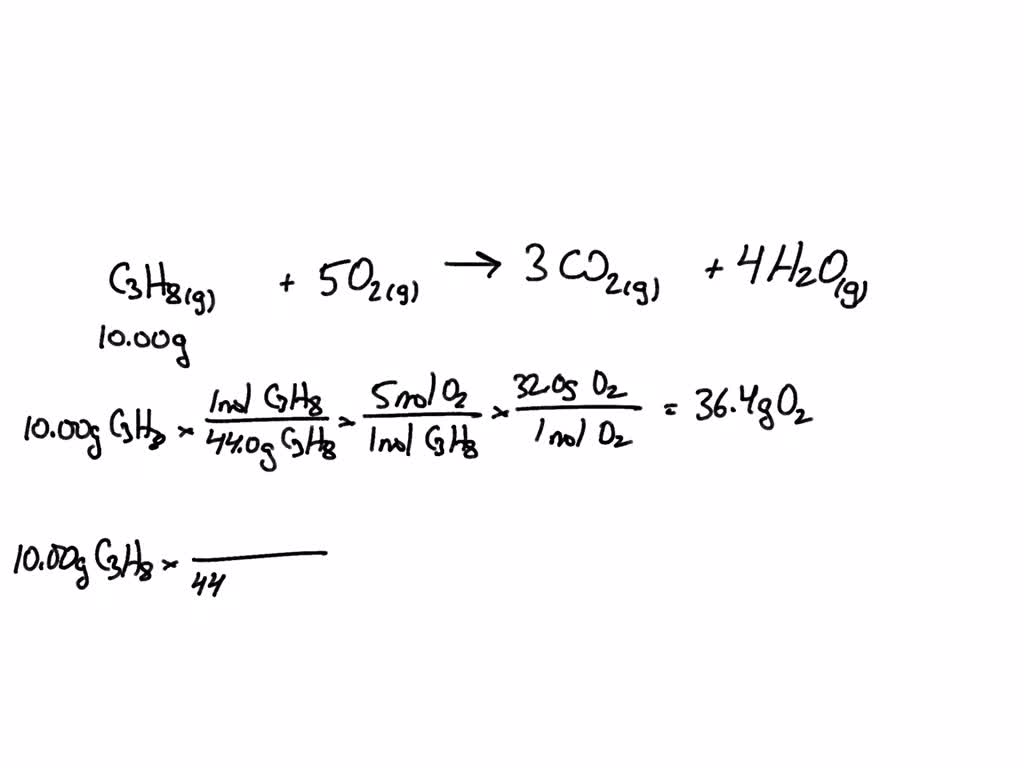 C3H8(g) + 5O2(g) → 3 CO2(g) + 4H2O(g)
10.00g
10.00g C3H8 × 1mol C3H8 / 44.0g C3H8 × 5mol O2 / 1mol C3H8 × 32.0g O2 / 1mol O2 = 36.4g O2
10.00g C3H8 × / 44